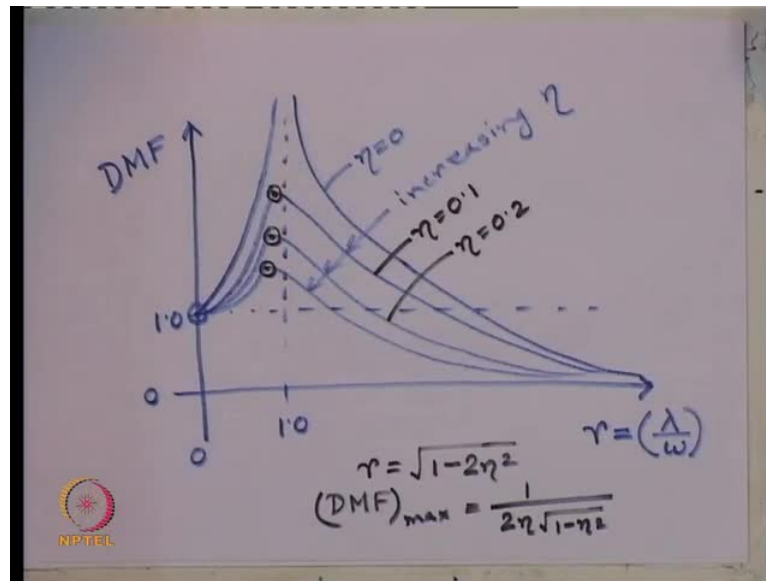 DMF
η=0
increasing η
η=0.1
η=0.2
1.0
0
0
1.0
r=(λ/ω)
r=√1-2η²
(DMF)max = 1/2η√1-η²
NPTEL